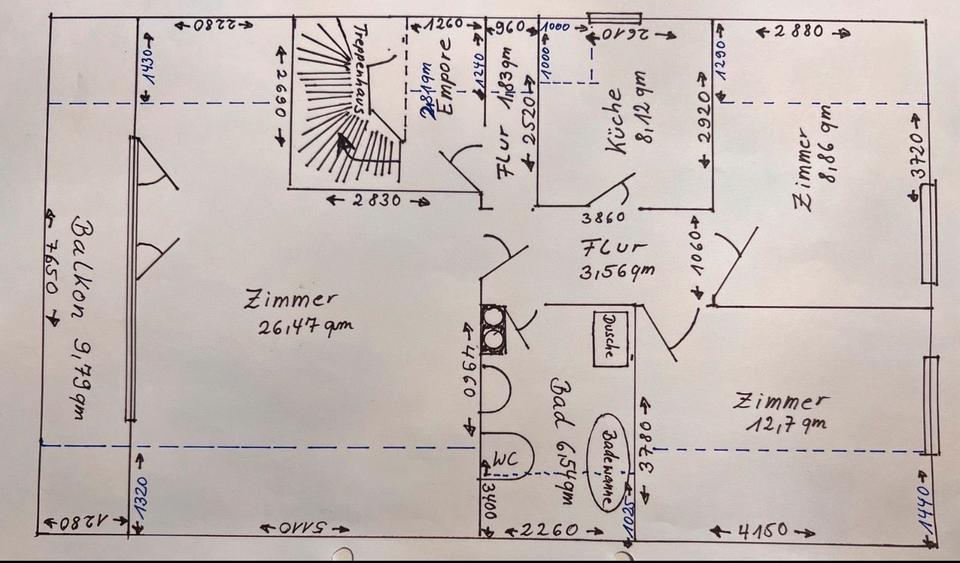 2280
1260
960
1000
2610
2880
1430
2690
Treppenhaus
2,81qm
Empore
1240
Flur 1,83qm
2520
1000
Küche
8,12qm
2920
1290
Zimmer
8,86 qm
3720
2830
3860
Flur
3,56qm
1060
Balkon 9,79qm
7650
Zimmer
26,47 qm
4960
Dusche
Bad 6,54qm
Badewanne
WC
3780
Zimmer
12,7 qm
1320
3400
1025
1440
1280
5110
2260
4150